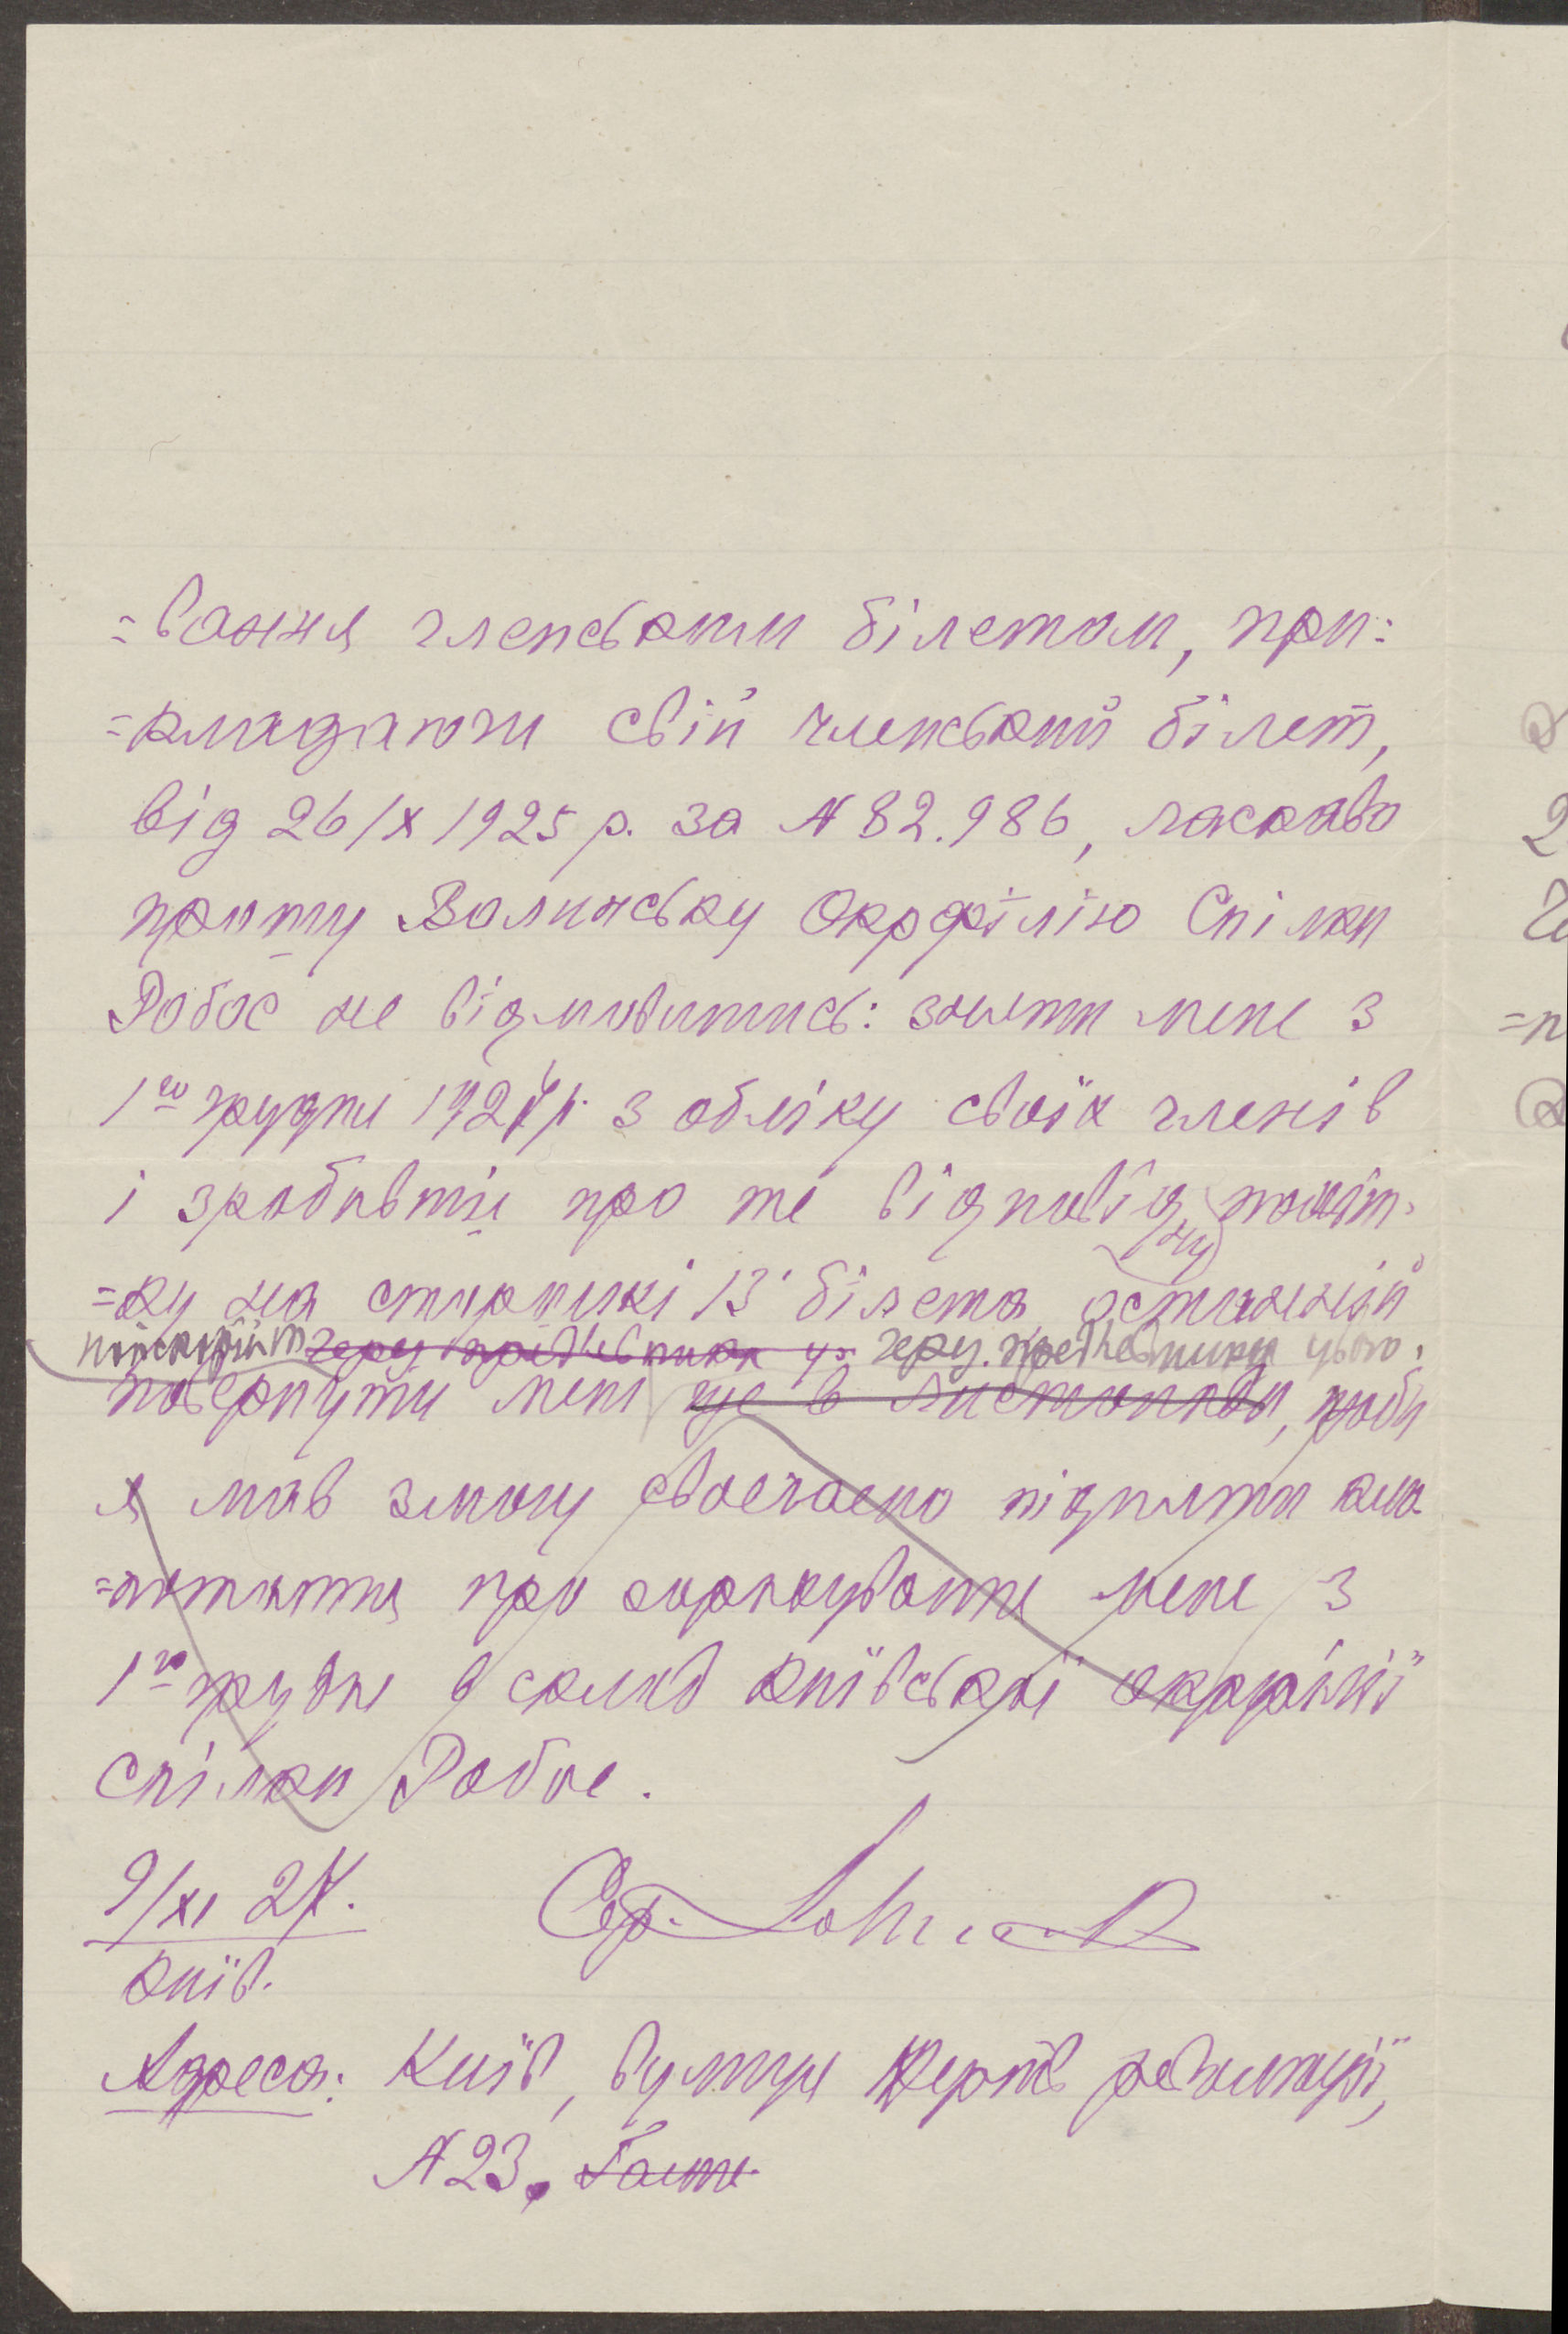 =вання членським білетом, при=
=кладаючи свій членський білет,
від 26/X 1925 р. за № 82.986, ласкаво
прошу Волинську Окрфілію Спілки
Робос не відмовитись: зняти мене з
1го грудня 1927 р. з обліку своїх членів
і зробивши про те відповідну поміт=
=ку на сторінці 13 білета, останній
через предъевника через предъевника цього.
повернути мені ще в листопаді, щоби
я мав змогу своечасно підняти кло=
=потання про зарахування мене з
1го грудня в склад Київської окрфілії
спілки Робос.
9/XI 27.
Київ.
Адреса: Київ, вулиця Жертв революції,
№ 23.